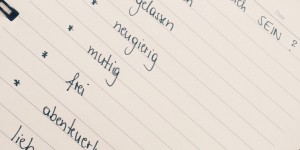 SEIN ?
gelassen
* neugierig
* mutig
* frei
* abenteuerl
lieb